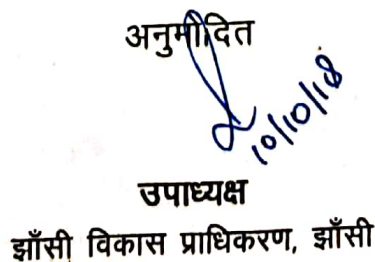 अनुमोदित
10/10/18
उपाध्यक्ष
झाँसी विकास प्राधिकरण, झाँसी